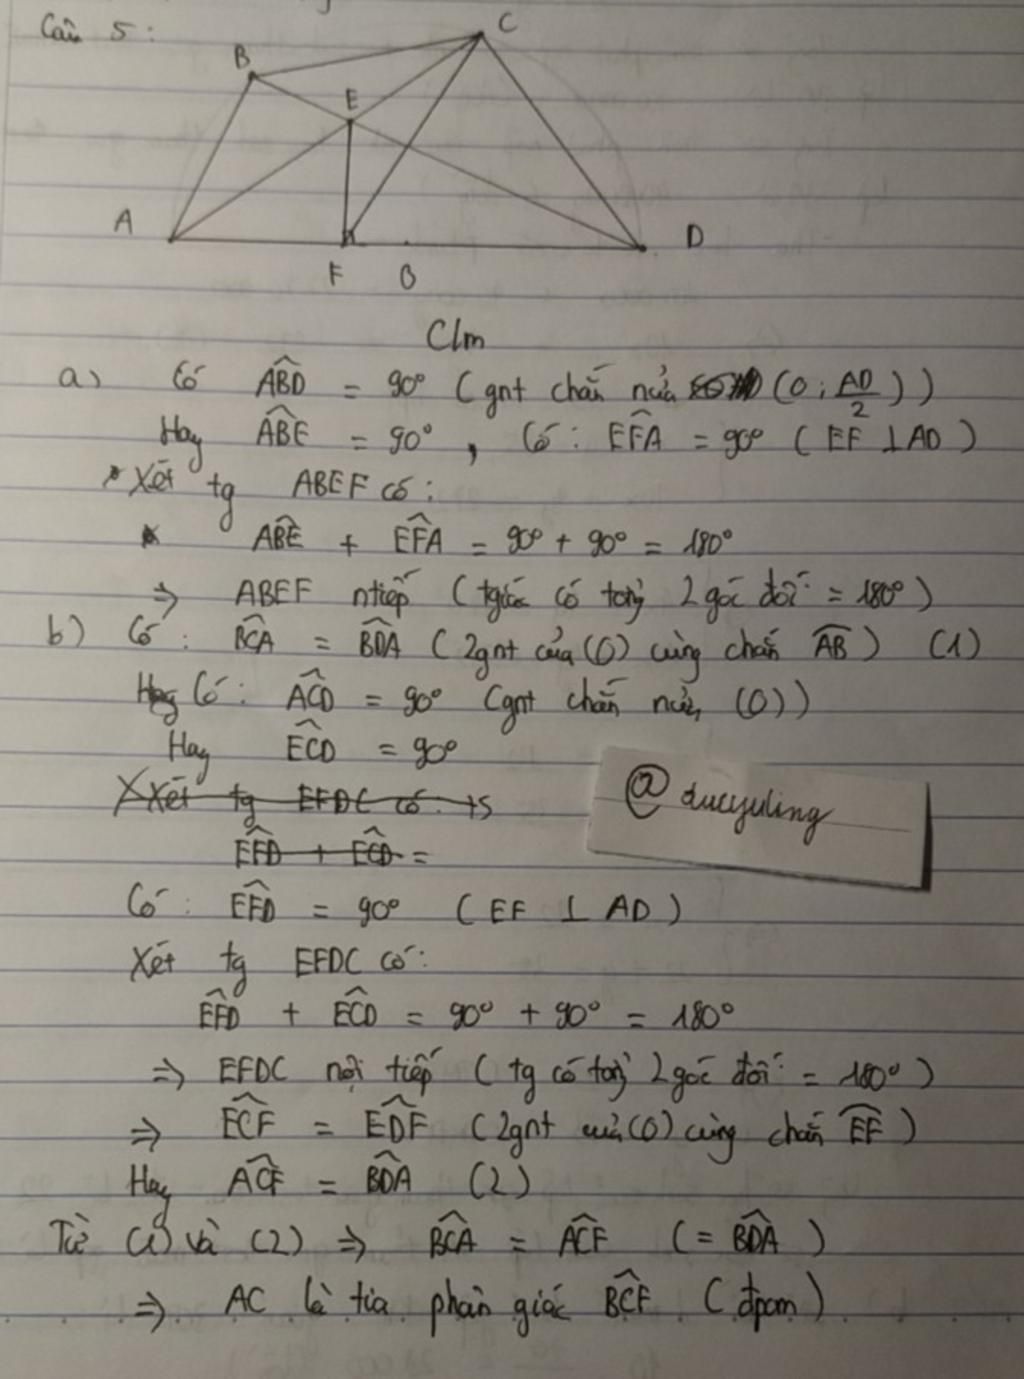 Câu 5:
C
B
E
A
D
F O
Clm
a) Có ABD̂ = 90° (gnt chắn nửa (O; AD/2))
Hay ABÊ = 90°, Có: EFÂ = 90° (EF ⊥ AD)
Xét tg ABEF có:
ABÊ + EFÂ = 90° + 90° = 180°
=> ABEF ntiếp (tgiác có tổng 2 góc đối = 180°)
b) Có: BCÂ = BDÂ (2gnt của (O) cùng chắn AB̂) (1)
Có: ACD̂ = 90° (gnt chắn nửa (O))
Hay ECD̂ = 90°
Xét tg EFDC có
EFD̂ + ECD̂ =
@ ducyuling
Có: EFD̂ = 90° (EF ⊥ AD)
Xét tg EFDC có:
EFD̂ + ECD̂ = 90° + 90° = 180°
=> EFDC nội tiếp (tg có tổng 2 góc đối = 180°)
=> ECF̂ = EDF̂ (2gnt của (O) cùng chắn EF̂)
Hay ACF̂ = BDÂ (2)
Từ (1) và (2) => BCÂ = ACF̂ (= BDÂ)
=> AC là tia phân giác BCF̂ (đpcm)